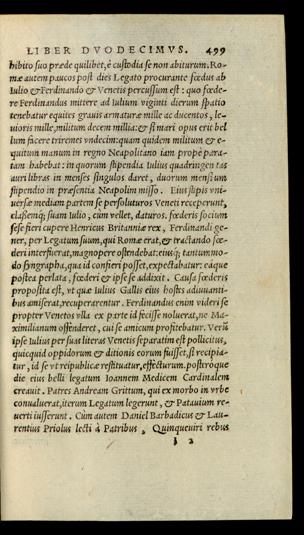 LIBER DVODECIMVS. 499
hibito suo præde quilibet, è custodia se non abiturum. Ro-
mæ autem paucos post dies Legato procurante fœdus ab
Iulio & Ferdinando & Venetis percussum est: quo fœde-
re Ferdinandus mittere ad Iulium viginti dierum spatio
tenebatur equites grauis armaturæ mille ac ducentos, le-
uioris mille, militum decem millia: & si mari opus erit bel
lum facere triremes vndecim: quam quidem militum & e-
quitum manum in regno Neapolitano iam propè para-
tam habebat: in quorum stipendia Iulius quadringen tas
auri libras in menses singulos daret, duorum mensium
stipendio in præsentia Neapolim misso. Eius stipis vni-
uersæ mediam partem se persoluturos Veneti receperunt,
classemq; suam Iulio, cùm vellet, daturos. fœderis socium
sese fieri cupere Henricus Britanniæ rex, Ferdinandi ge-
ner, per Legatum suum, qui Romæ erat, & tractando fœ-
deri interfuerat, magnopere ostendebat: eiusq; tantummo-
do syngrapha, qua id confieri posset, expectabatur: eáque
postea perlata, fœderi & ipse se addixit. Causa fœderis
proposita est, vt quæ Iulius Gallis eius hostes adiuuanti-
bus amiserat, recuperarentur. Ferdinandus enim videri se
propter Venetos vlla ex parte id fecisse noluerat, ne Ma-
ximilianum offenderet, cui se amicum profitebatur. Verũ
ipse Iulius per suas literas Venetis separatim est pollicitus,
quicquid oppidorum & ditionis eorum fuisset, si recipia-
tur, id se vt reipublicæ restituatur, effecturum. postróque
die eius belli legatum Ioannem Medicem Cardinalem
creauit. Patres Andream Grittum, qui ex morbo in vrbe
conualuerat, iterum Legatum legerunt, & Patauium re-
uerti iusserunt. Cùm autem Daniel Barbadicus & Lau-
rentius Priolus lecti à Patribus, Quinqueuiri rebus
2